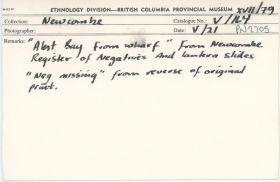 ETHNOLOGY DIVISION—BRITISH COLUMBIA PROVINCIAL MUSEUM XVII/79
Collection: Newcombe Catalogue No.: V/164
Photographer: Date: V/21 PN2705
Remarks: "Alert Bay from wharf" from Newcombe
Register of Negatives and lantern slides
"Neg missing" from reverse of original
print.